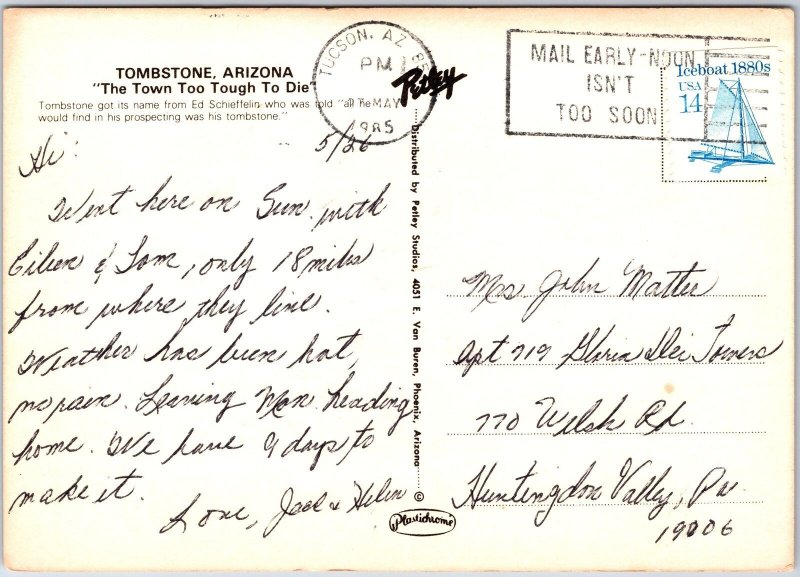 TOMBSTONE, ARIZONA
"The Town Too Tough To Die"
Tombstone got its name from Ed Schieffelin who was told "all he
would find in his prospecting was his tombstone."
TUCSON, AZ 85
PM
MAY
1985
Petley
MAIL EARLY-NOON
ISN'T
TOO SOON
Iceboat 1880s
USA
14
5/26
Hi:
Went here on Sun. with
Eileen & Tom, only 18 miles
from where they live.
Weather has been hot,
no rain. Leaving Mon heading
home. We have 9 days to
make it.
Love, Joel & Helen
Distributed by Petley Studios, 4051 E. Van Buren, Phoenix, Arizona
©
Plastichrome
Mrs John Matter
Apt 719 Gloria Dei Towers
770 Welsh Rd.
Huntingdon Valley, Pa
19006